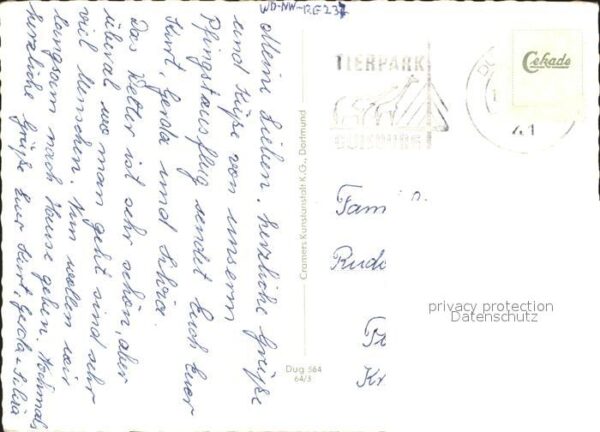 WD-NW-RE237
Meine Lieben. Herzliche Grüße
und Küße von unserm
Pfingstausflug sendet Euch Euer
Kurt, Gerda und Silvia.
Das Wetter ist sehr schön, aber
überal wo man geht sind sehr
viel Menschen. Nun wollen wir
langsam nach Hause gehen. Nochmals
herzliche Grüße Euer Kurt, Gerda + Silvia
Cramers Kunstanstalt K.G., Dortmund
Dug 564
64/5
TIERPARK
DUISBURG
41
Cekade
Fam
Rudo
Kr
privacy protection
Datenschutz